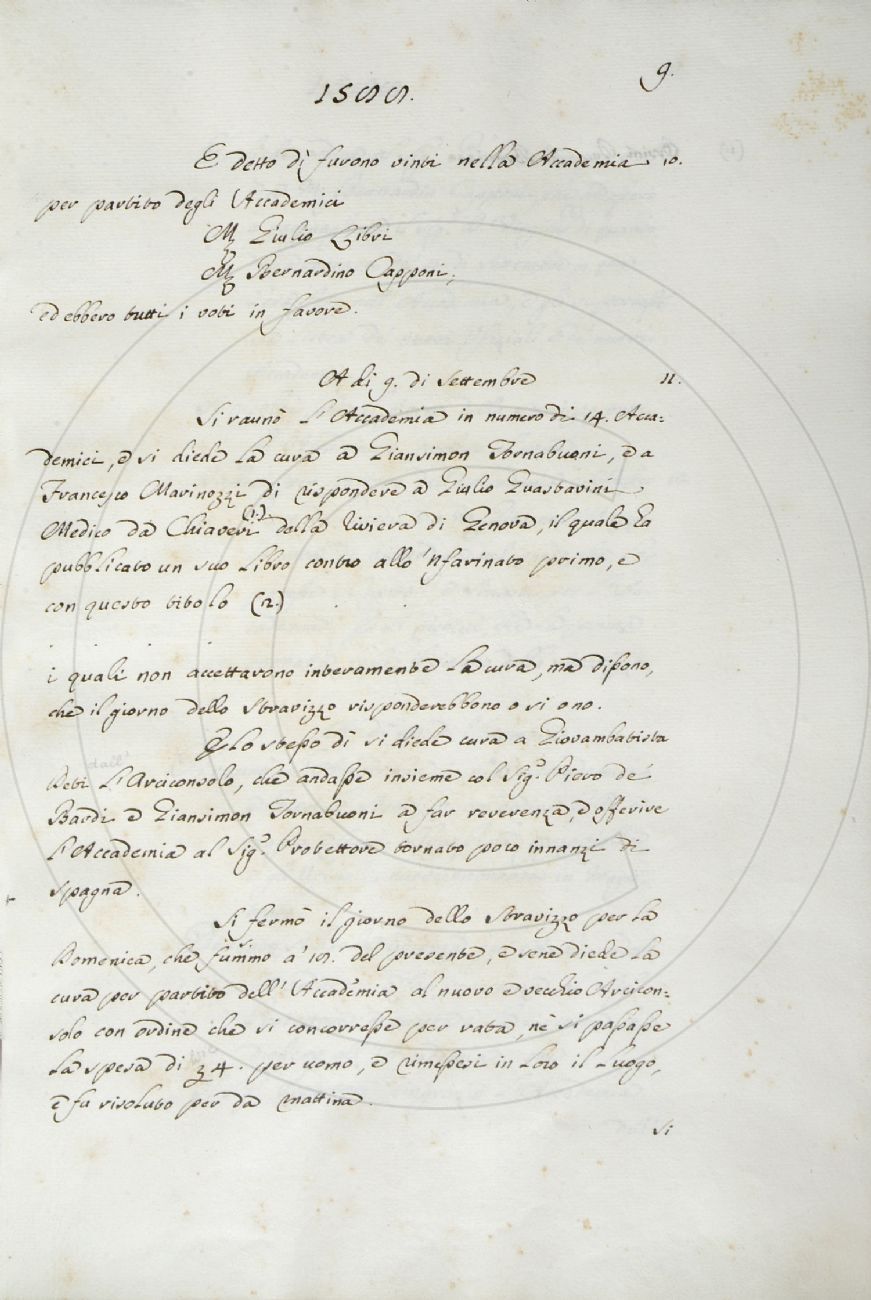 9.
1588.
E detto dì furono vinti nella Accademia 10.
per partito degli Accademici
M. Giulio Libri
M. Bernardino Capponi;
ed ebbero tutti i voti in favore.
A di 9. di Settembre 11.
Si raunò l'Accademia in numero di 14. Acca:
demici, e si diede la cura a Giansimon Tornabuoni, e a
Francesco Marinozzi di rispondere a Giulio Guastavini
Medico da Chiaveri (1.) della riviera di Genova, il quale ha
pubblicato un suo libro contro allo 'nfarinato primo, e
con questo titolo (2.) . .
i quali non accettarono interamente la cura, ma dissono,
che il giorno dello Stravizzo risponderebbono o si o no.
E lo stesso dì si diede cura a Giovambatista
Deti l'Arciconsolo, che andasse insieme col Sig.^o Piero de'
Bardi e Giansimon Tornabuoni a far reverenza, e offerire
l'Accademia al Sig.^o Protettore tornato poco innanzi di
Spagna.
Si fermò il giorno dello Stravizzo per la
Domenica, che fummo a' 19. del presente, e sene diede la
cura per partito dell'Accademia al nuovo e vecchio Arcicon:
solo con ordine che si concorresse per rata, nè si passasse
la spesa di 34. per uomo, e rimessesi in loro il luogo,
e fu risoluto per da mattina.
si